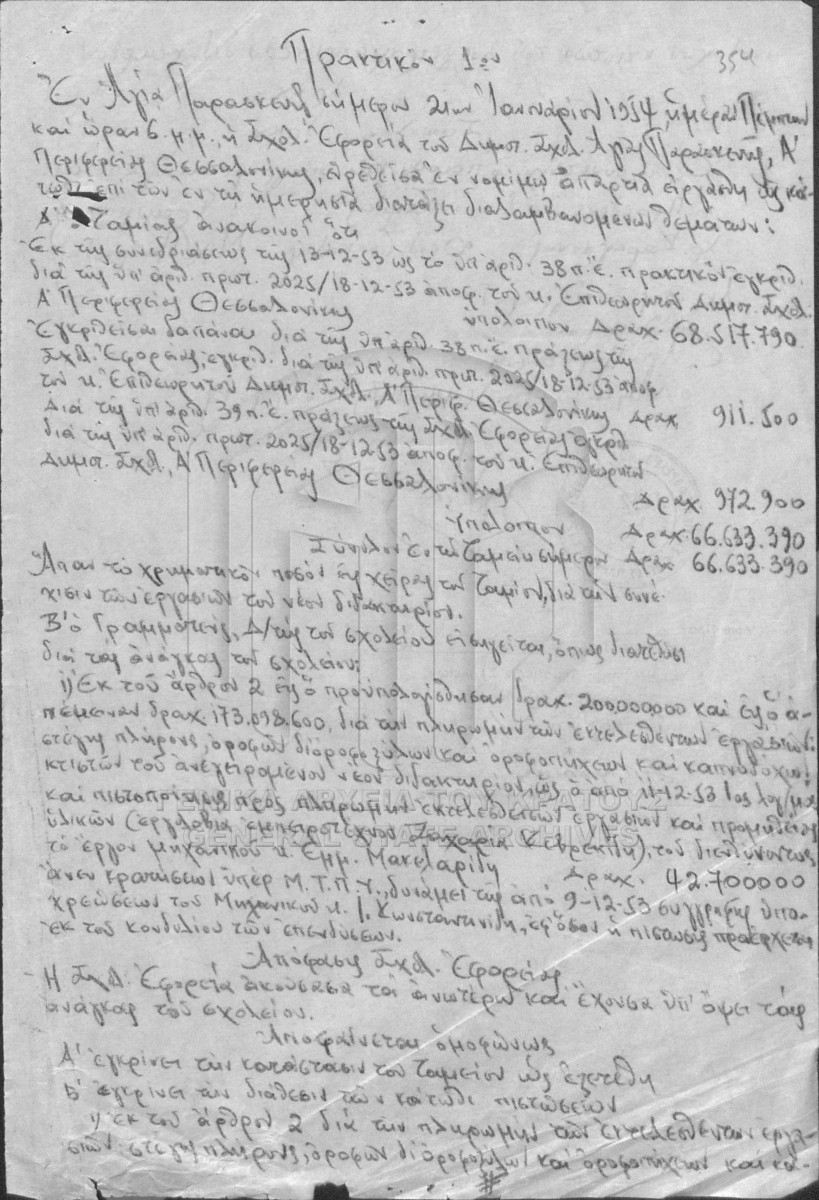 354
Πρακτικόν 1ον
Ἐν Ἁγίᾳ Παρασκευῇ σήμερον 21ην Ἰανουαρίου 1954, ἡμέραν Πέμπτην
καί ὥραν 6 μ.μ., ἡ Σχολ. Ἐφορεία τοῦ Δημοτ. Σχολ. Ἁγίας Παρασκευῆς, Α'
Περιφερείας Θεσσαλονίκης, εὑρεθεῖσα ἐν νομίμῳ ἀπαρτίᾳ εἰργάσθη ὡς κά-
τωθι ἐπί τῶν ἐν τῇ ἡμερησίᾳ διατάξει διαλαμβανομένων θεμάτων:
Α' ὁ Ταμίας ἀνακοινοῖ ὅτι
Ἐκ τῆς συνεδριάσεως τῆς 13-12-53 ὡς τό ὑπ' ἀριθ. 38 π.ἔ. πρακτικόν ἐγκριθ.
διά τῆς ὑπ' ἀριθ. πρωτ. 2025/18-12-53 ἀποφ. τοῦ κ. Ἐπιθεωρητοῦ Δημοτ. Σχολ.
Α' Περιφερείας Θεσσαλονίκης ὑπόλοιπον Δραχ. 68.517.790
Ἐγκριθεῖσαι δαπάναι διά τῆς ὑπ' ἀριθ. 38 π.ἔ. πράξεως τῆς
Σχολ. Ἐφορείας, ἐγκριθ. διά τῆς ὑπ' ἀριθ. πρωτ. 2025/18-12-53 ἀποφ
τοῦ κ. Ἐπιθεωρητοῦ Δημοτ. Σχολ., Α' Περιφ. Θεσσαλονίκης Δραχ 911.500
Διά τῆς ὑπ' ἀριθ. 39 π.ἔ. πράξεως τῆς Σχολ. Ἐφορείας ἐγκριθ
διά τῆς ὑπ' ἀριθ. πρωτ. 2025/18-12-53 ἀποφ. τοῦ κ. Ἐπιθεωρητοῦ
Δημοτ. Σχολ., Α' Περιφερείας Θεσσαλονίκης
Δραχ. 972.900
Ὑπόλοιπον Δραχ. 66.633.390
Σύνολον ἐν τῷ Ταμείῳ σήμερον Δραχ 66.633.390
Ἅπαν τό χρηματικόν ποσόν εἰς χεῖρας τοῦ Ταμίου, διά τήν συνέ-
χισιν τῶν ἐργασιῶν τοῦ νέου διδακτηρίου.
Β' ὁ Γραμματεύς, Δ/τής τοῦ σχολείου εἰσηγεῖται, ὅπως διατεθῶσι
διά τάς ἀνάγκας τοῦ σχολείου:
1) Ἐκ τοῦ ἄρθρου 2 εἰς ὅ προϋπολογίσθησαν δραχ. 200.000.000 καί ἐξ οὗ ἀ-
πέμειναν δραχ. 173.098.600, διά τήν πληρωμήν τῶν ἐκτελεσθέντων ἐργασιῶν:
στέγης πλήρους, ὀροφῶν διʼ ὀροφοξύλων καί ὀροφοπήχεων καί καπνοδόχων
κτιστῶν τοῦ ἀνεγειρομένου νέου διδακτηρίου, ὡς ὁ ἀπό 11-12-53 1ος λογ/μός
καί πιστοποίησις πρός πληρωμήν ἐκτελεσθεισῶν ἐργασιῶν καί προμηθείας
ὑλικῶν (ἐργολάβου ἐμπειροτέχνου Ζαχαρία), τοῦ διευθύνοντος
τό ἔργον μηχανικοῦ κ. Ἐμμ. Μακελαρίδη Δραχ. 42.700000
ἄνευ κρατήσεων ὑπέρ Μ.Τ.Π.Υ., δυνάμει τῆς ἀπό 9-12-53 συγγραφῆς ὑπο-
χρεώσεων τοῦ Μηχανικοῦ κ. Ι. Κωνσταντινίδη, ἐφʼ ὅσον ἡ πίστωσις προέρχεται
ἐκ τοῦ κονδυλίου τῶν ἐπενδύσεων.
Ἀπόφασις Σχολ. Ἐφορείας
Ἡ Σχολ. Ἐφορεία ἀκούσασα τά ἀνωτέρω καί ἔχουσα ὑπʼ ὄψει τάς
ἀνάγκας τοῦ σχολείου.
Ἀποφαίνεται ὁμοφώνως
Α' ἐγκρίνει τήν κατάστασιν τοῦ ταμείου ὡς ἐξετέθη
Β' ἐγκρίνει τήν διάθεσιν τῶν κάτωθι πιστώσεων
1) ἐκ τοῦ ἄρθρου 2 διά τήν πληρωμήν τῶν ἐκτελεσθέντων ἐργα-
σιῶν: στέγης πλήρους, ὀροφῶν διʼ ὀροφοξύλων καί ὀροφοπήχεων καί κα-
ΓΕΝΙΚΑ ΑΡΧΕΙΑ ΤΟΥ ΚΡΑΤΟΥΣ
GENERAL STATE ARCHIVES